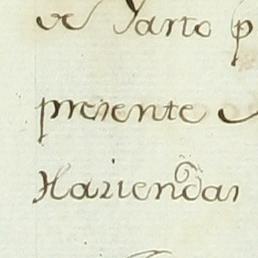 de Yarto p
presente
Haziendas